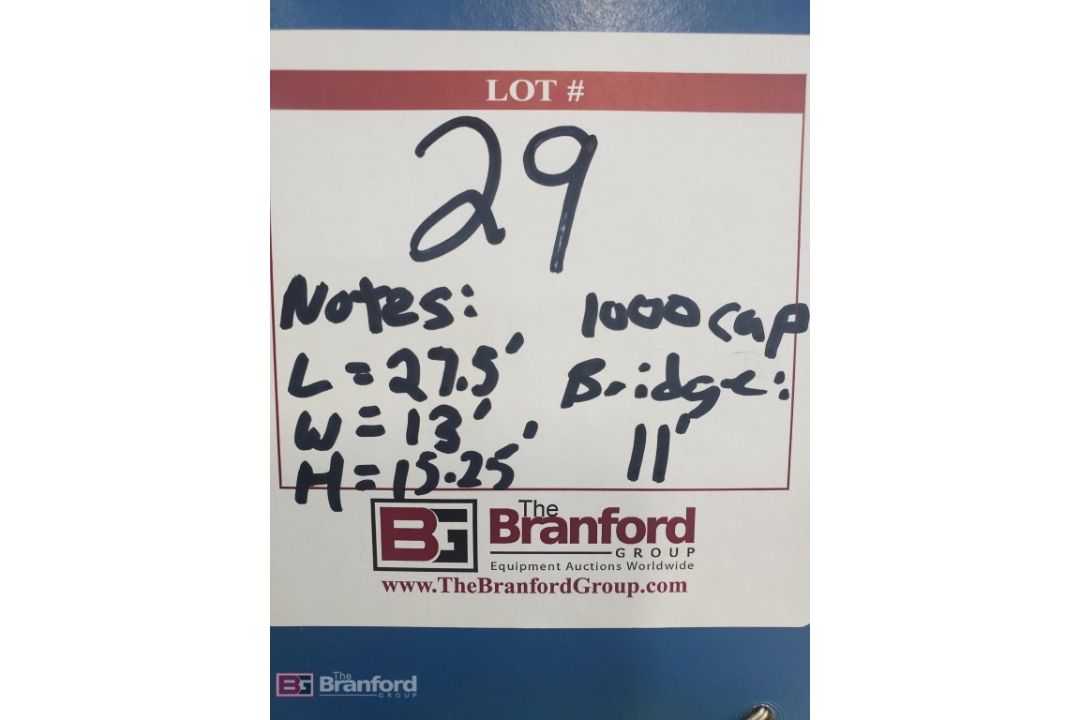 LOT #
29
Notes:
L = 27.5'
W = 13'
H = 15.25'
1000 cap
Bridge:
11'
BG
The
Branford
GROUP
Equipment Auctions Worldwide
www.TheBranfordGroup.com
BG
The
Branford
GROUP